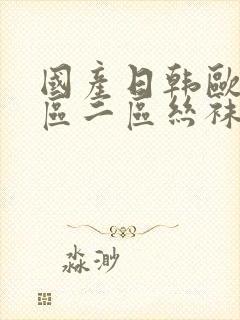 國產日韩歐
區二區丝袜
淼渺